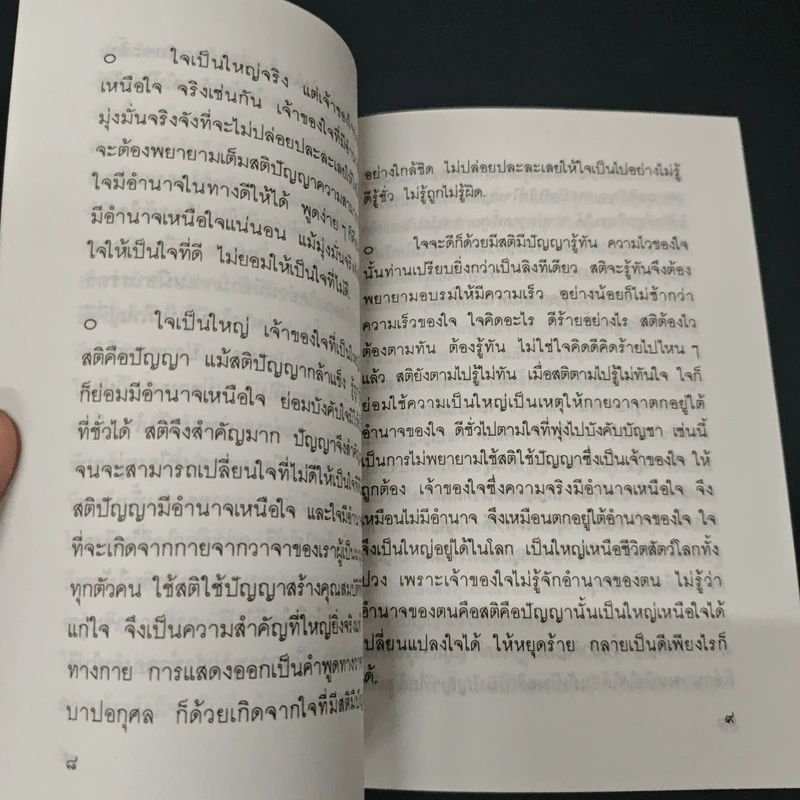 ๐ ใจเป็นใหญ่จริง แต่เจ้าของใจ
เหนือใจ จริงเช่นกัน เจ้าของใจที่มี
มุ่งมั่นจริงจังที่จะไม่ปล่อยปละละเลยให้
จะต้องพยายามเต็มสติปัญญาความ
ใจมีอำนาจในทางดีให้ได้ พูดง่าย ๆ
มีอำนาจเหนือใจแน่นอน แม้มุ่งมั่นจริง
ใจให้เป็นใจที่ดี ไม่ยอมให้เป็นใจที่ไม่ดี
๐ ใจเป็นใหญ่ เจ้าของใจที่เป็น
สติคือปัญญา แม้สติปัญญากล้าแข็ง
ก็ย่อมมีอำนาจเหนือใจ ย่อมบังคับใจ
ที่ชั่วได้ สติจึงสำคัญมาก ปัญญาจึง
จนจะสามารถเปลี่ยนใจที่ไม่ดีให้เป็นใจ
สติปัญญามีอำนาจเหนือใจ และใจมี
ที่จะเกิดจากกายจากวาจาของเราผู้เป็น
ทุกตัวคน ใช้สติใช้ปัญญาสร้างคุณสมบัติ
แก่ใจ จึงเป็นความสำคัญที่ใหญ่ยิ่งจริง
ทางกาย การแสดงออกเป็นคำพูดทาง
บาปอกุศล ก็ด้วยเกิดจากใจที่มีสติ
๘
อย่างใกล้ชิด ไม่ปล่อยปละละเลยให้ใจเป็นไปอย่างไม่รู้
ดีรู้ชั่ว ไม่รู้ถูกไม่รู้ผิด.
๐ ใจจะดีก็ด้วยมีสติมีปัญญารู้ทัน ความไวของใจ
นั้นท่านเปรียบยิ่งกว่าเป็นลิงทีเดียว สติจะรู้ทันจึงต้อง
พยายามอบรมให้มีความเร็ว อย่างน้อยก็ไม่ช้ากว่า
ความเร็วของใจ ใจคิดอะไร ดีร้ายอย่างไร สติต้องไว
ต้องตามทัน ต้องรู้ทัน ไม่ใช่ใจคิดดีคิดร้ายไปไหน ๆ
แล้ว สติยังตามไปรู้ไม่ทัน เมื่อสติตามไปรู้ไม่ทันใจ ใจก็
ย่อมใช้ความเป็นใหญ่เป็นเหตุให้กายวาจาตกอยู่ใต้
อำนาจของใจ ดีชั่วไปตามใจที่พุ่งไปบังคับบัญชา เช่นนี้
เป็นการไม่พยายามใช้สติใช้ปัญญาซึ่งเป็นเจ้าของใจ ให้
ถูกต้อง เจ้าของใจซึ่งความจริงมีอำนาจเหนือใจ จึง
เหมือนไม่มีอำนาจ จึงเหมือนตกอยู่ใต้อำนาจของใจ ใจ
จึงเป็นใหญ่อยู่ได้ในโลก เป็นใหญ่เหนือชีวิตสัตว์โลกทั้ง
ปวง เพราะเจ้าของใจไม่รู้จักอำนาจของตน ไม่รู้ว่า
อำนาจของตนคือสติคือปัญญานั้นเป็นใหญ่เหนือใจได้
เปลี่ยนแปลงใจได้ ให้หยุดร้าย กลายเป็นดีเพียงไรก็
ได้.
๙